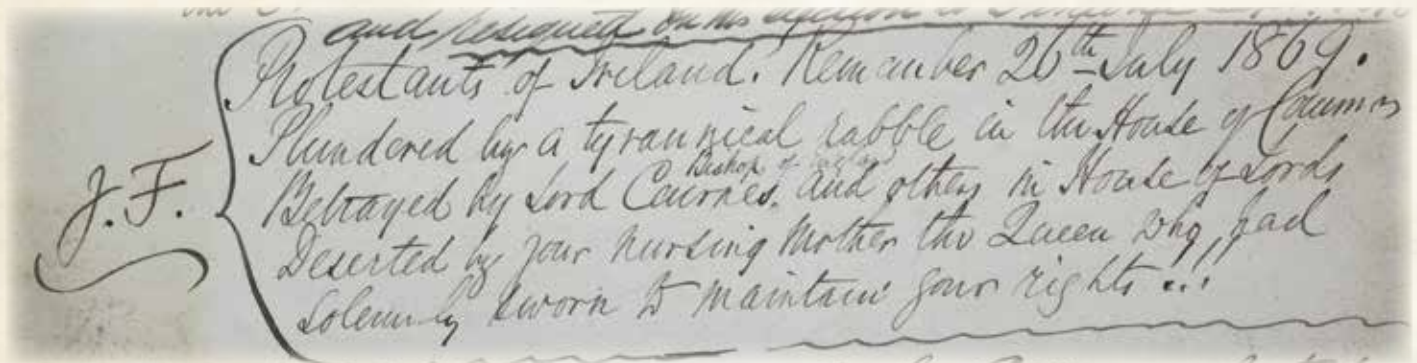 and resigned on his
Protestants of Ireland. Remember 26th July 1869.
Plundered by a tyrannical rabble in the House of Commons
Bishop of England
Betrayed by Lord Cairnes, and others in House of Lords
Deserted by your nursing Mother the Queen who, had
solemnly sworn to maintain your rights...!
J.F.